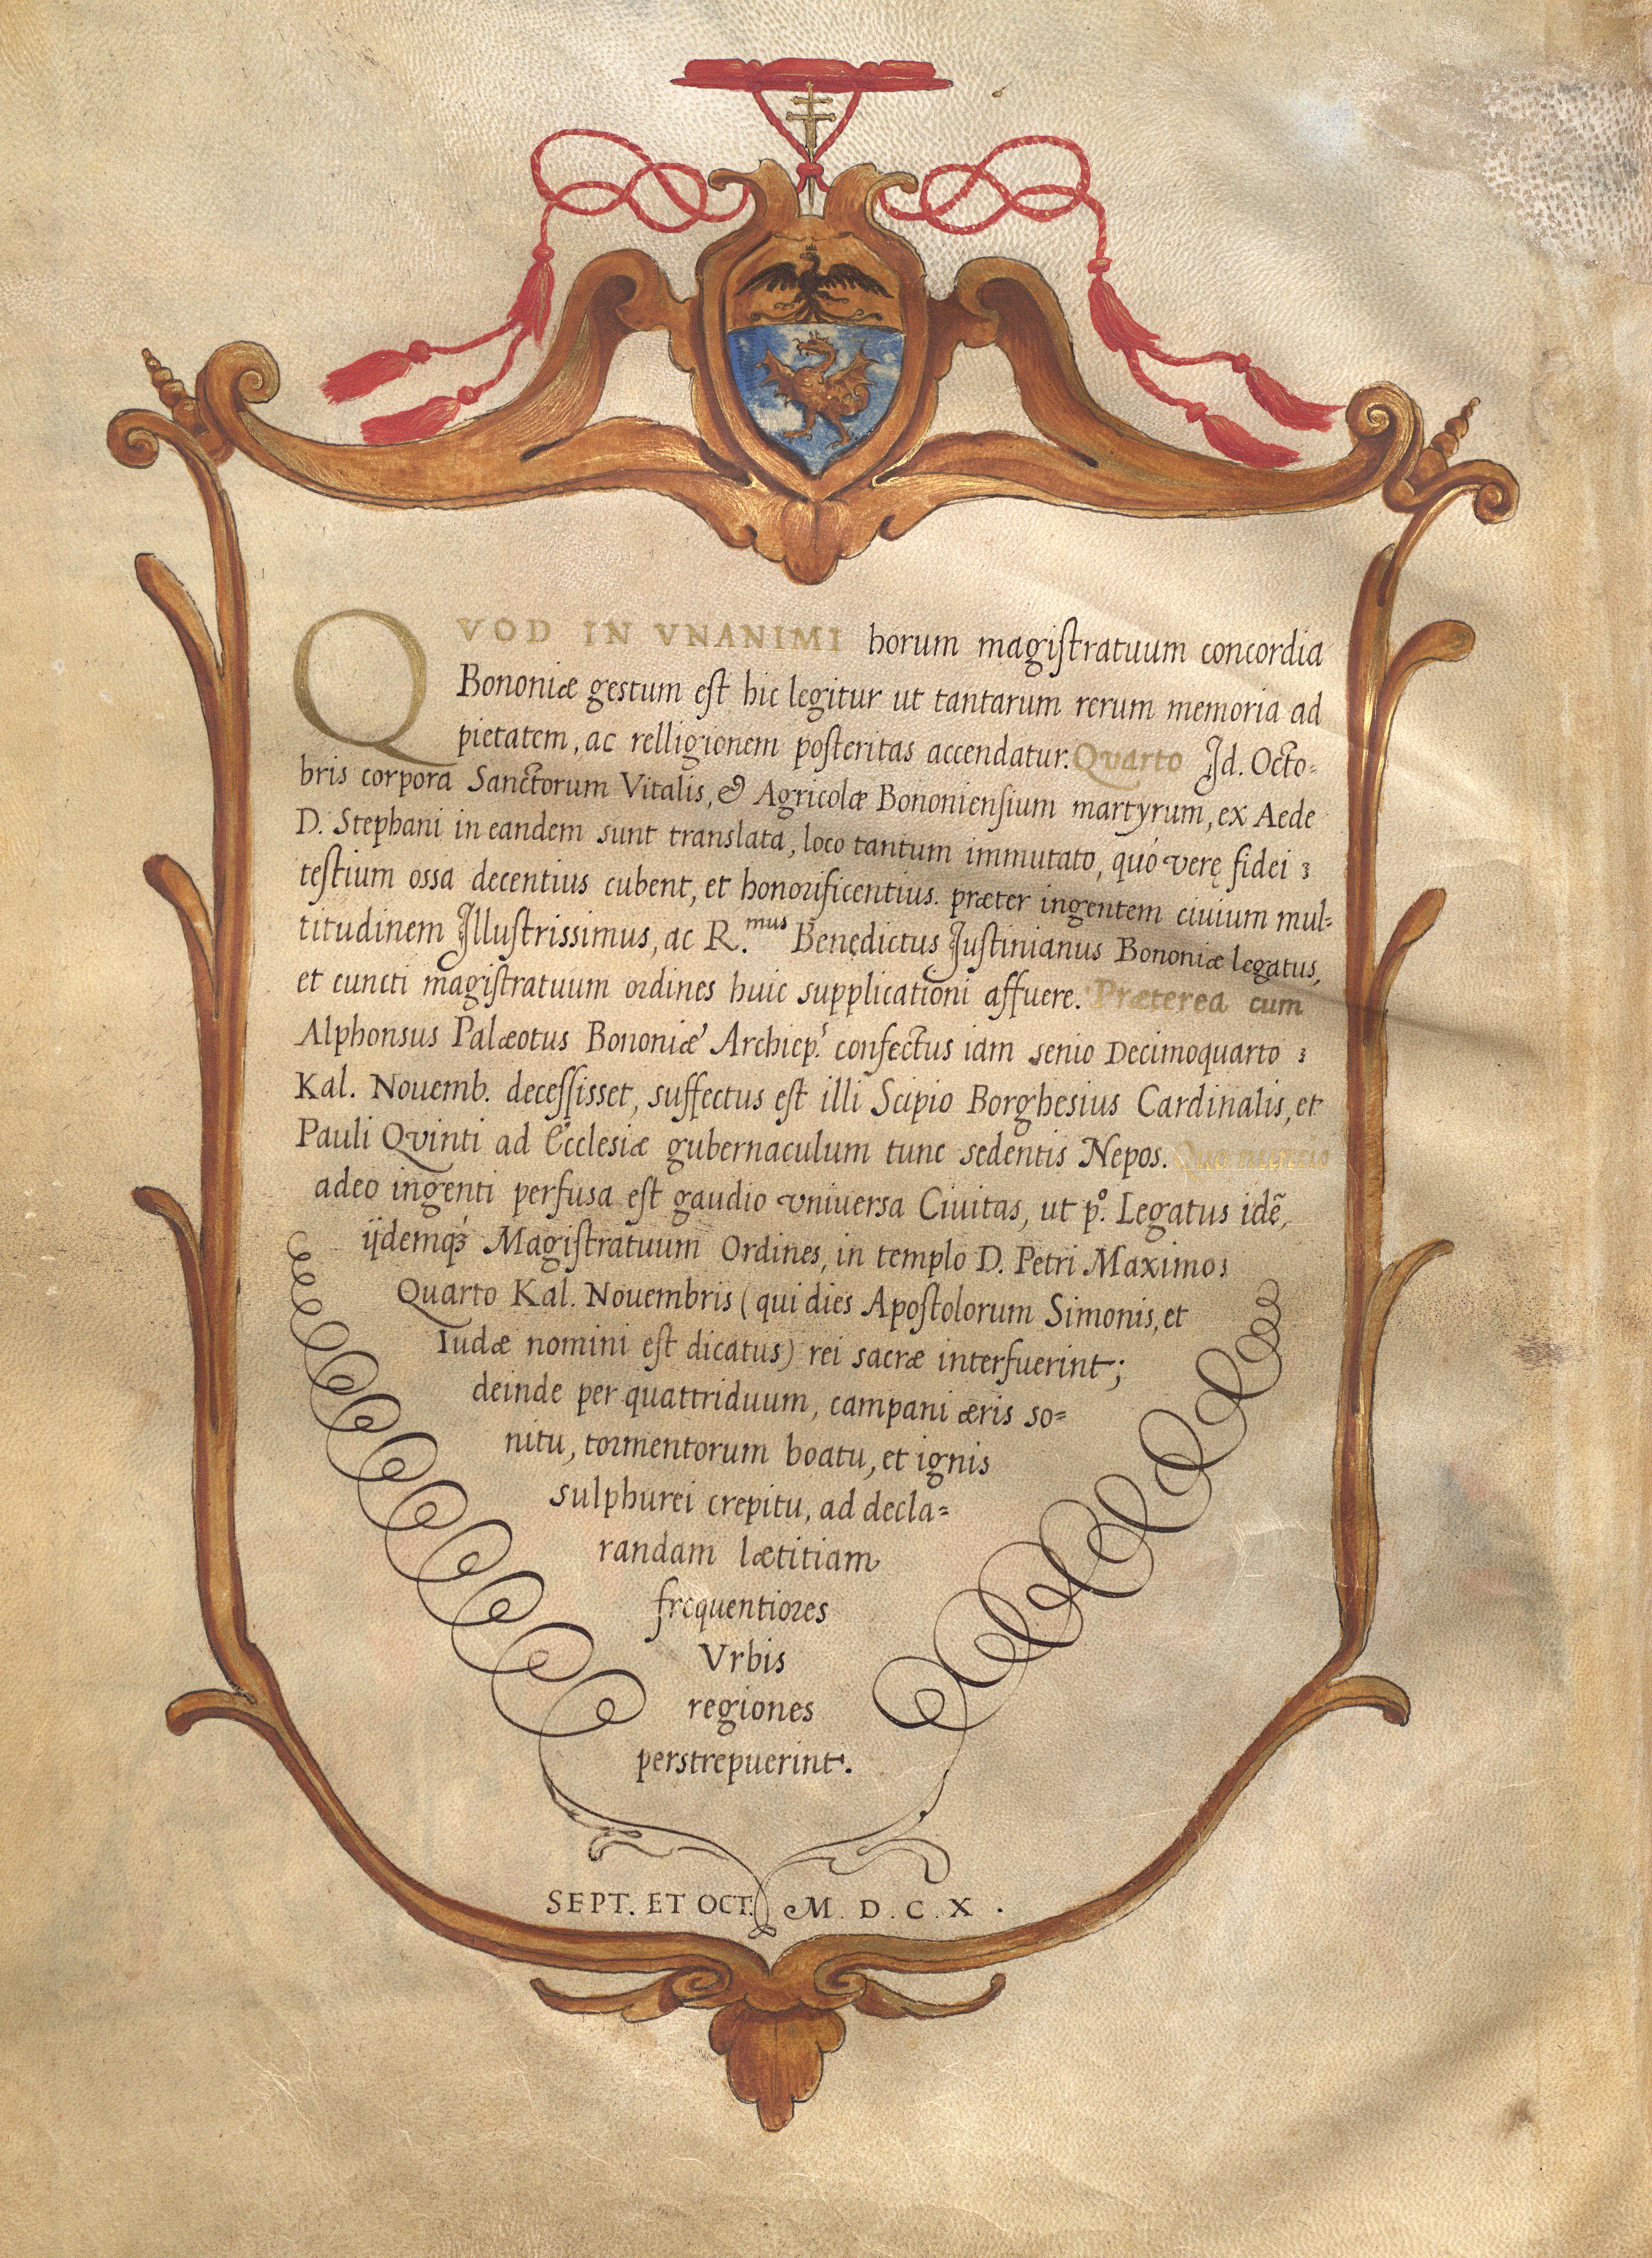 QVOD IN VNANIMI horum magistratuum concordia
Bononiæ gestum est hic legitur ut tantarum rerum memoria ad
pietatem, ac relligionem posteritas accendatur. Quarto Id. Octo=
bris corpora Sanctorum Vitalis, & Agricolæ Bononiensium martyrum, ex Aede
D. Stephani in eandem sunt translata, loco tantum immutato, quó verę fidei
testium ossa decentius cubent, et honorificentius. præter ingentem ciuium mul=
titudinem Illustrissimus, ac R.mus Benedictus Iustinianus Bononiæ legatus,
et cuncti magistratuum ordines huic supplicationi affuere. Præterea cum
Alphonsus Palæotus Bononiæ Archiep.s confectus iam senio Decimoquarto
Kal. Nouemb. decessisset, suffectus est illi Scipio Borghesius Cardinalis, et
Pauli Qvinti ad Ecclesiæ gubernaculum tunc sedentis Nepos. Quo nuncio
adeo ingenti perfusa est gaudio vniuersa Ciuitas, ut p.o Legatus idẽ,
ijdemq3 Magistratuum Ordines, in templo D. Petri Maximo
Quarto Kal. Nouembris (qui dies Apostolorum Simonis, et
Iudæ nomini est dicatus) rei sacræ interfuerint;
deinde per quattriduum, campani æris so=
nitu, tormentorum boatu, et ignis
sulphurei crepitu, ad decla=
randam lætitiam
frequentiores
Vrbis
regiones
perstrepuerint.
SEPT. ET OCT. M. D. C. X.